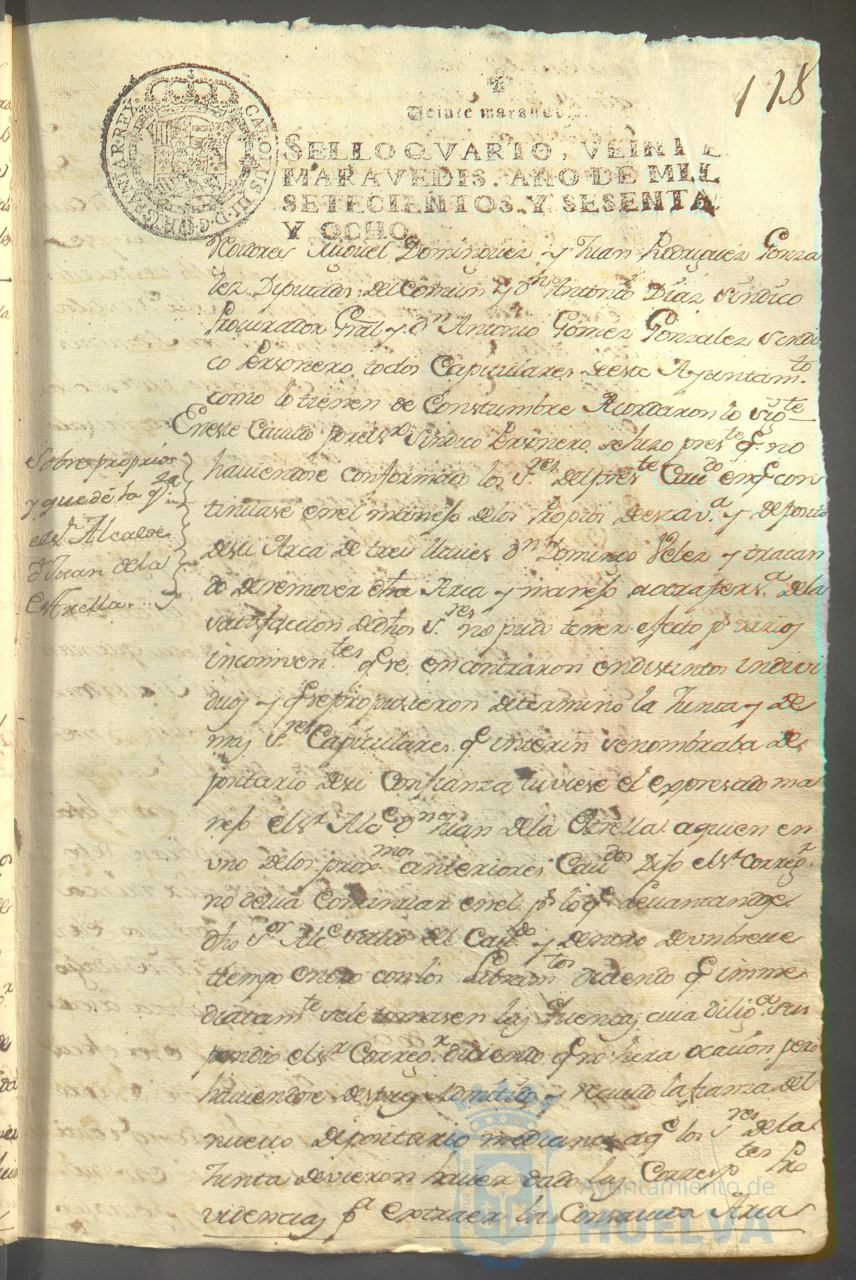 118
Veinte maraued
SELLO QVARTO, VEINTE
MARAVEDIS, AÑO DE MIL
SETECIENTOS, Y SESENTA
Y OCHO.
CAROLUS III D G HISPANIAR REX
Miguel Dominguez y Juan Rodriguez Gonza
lez Diputados del Comun y dn Antonio Diaz Sindico
Procurador Gral y dn Antonio Gomez Gonzalez Sindi
co Personero, todos Capitulares deeste Ayuntamto
como lo tienen de Constumbre Acordaron lo sigte
Eneste Cauildo por el sr Sindico Personero, se hizo preste qe no
Sobre proprios
y que dé la qta
el sr Alcalde
dn Juan dela
Estrella
haviendose conformado los Sres del preste Caudo en qe con
tinuase en el manejo delos Propios de esta va y deposito
desu Arca de tres llaues dn Domingo Velez y tratan
do de remover dha Arca y manejo a otra persa dela
satisfaccion de dhos Sres no pudo tener efecto pr varios
inconventes qe se encontraron en distintos indivi
duos y qe se propusieron determinó la Junta y de
mas Sres Capitulares qe interin se nombraba de
pocitario desu Confianza tuviese el expresado ma
nejo el sr Alce dn Juan dela Estrella aquien en
uno delos proxmos anteriores Caudos Dijo el sr Corregr
no devia Continuar en el pr lo qe
dho Sor Alce salio del Caudo y dentro de un breue
tiempo entró con los Libramtos diciendo qe imme
diatamte se le tomasen las Quentas cuia diliga sus
pendio el sr Corregr diciendo qe no hera ocasion pero
haviendose despues y receuido la fianza del
nuevo depocitario mediante aqe los Sres dela
Junta devieron hauer dado las Correspotes Pro
videncias pa extraer la Arca
Ayuntamiento de
HUELVA